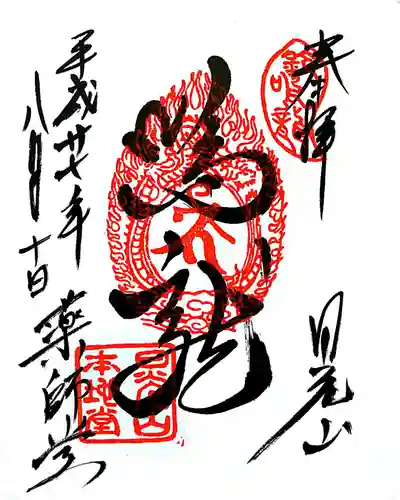 奉拝
日光山
鳴龍
平成廿七年
八月十日
薬師堂
日光山
本地堂